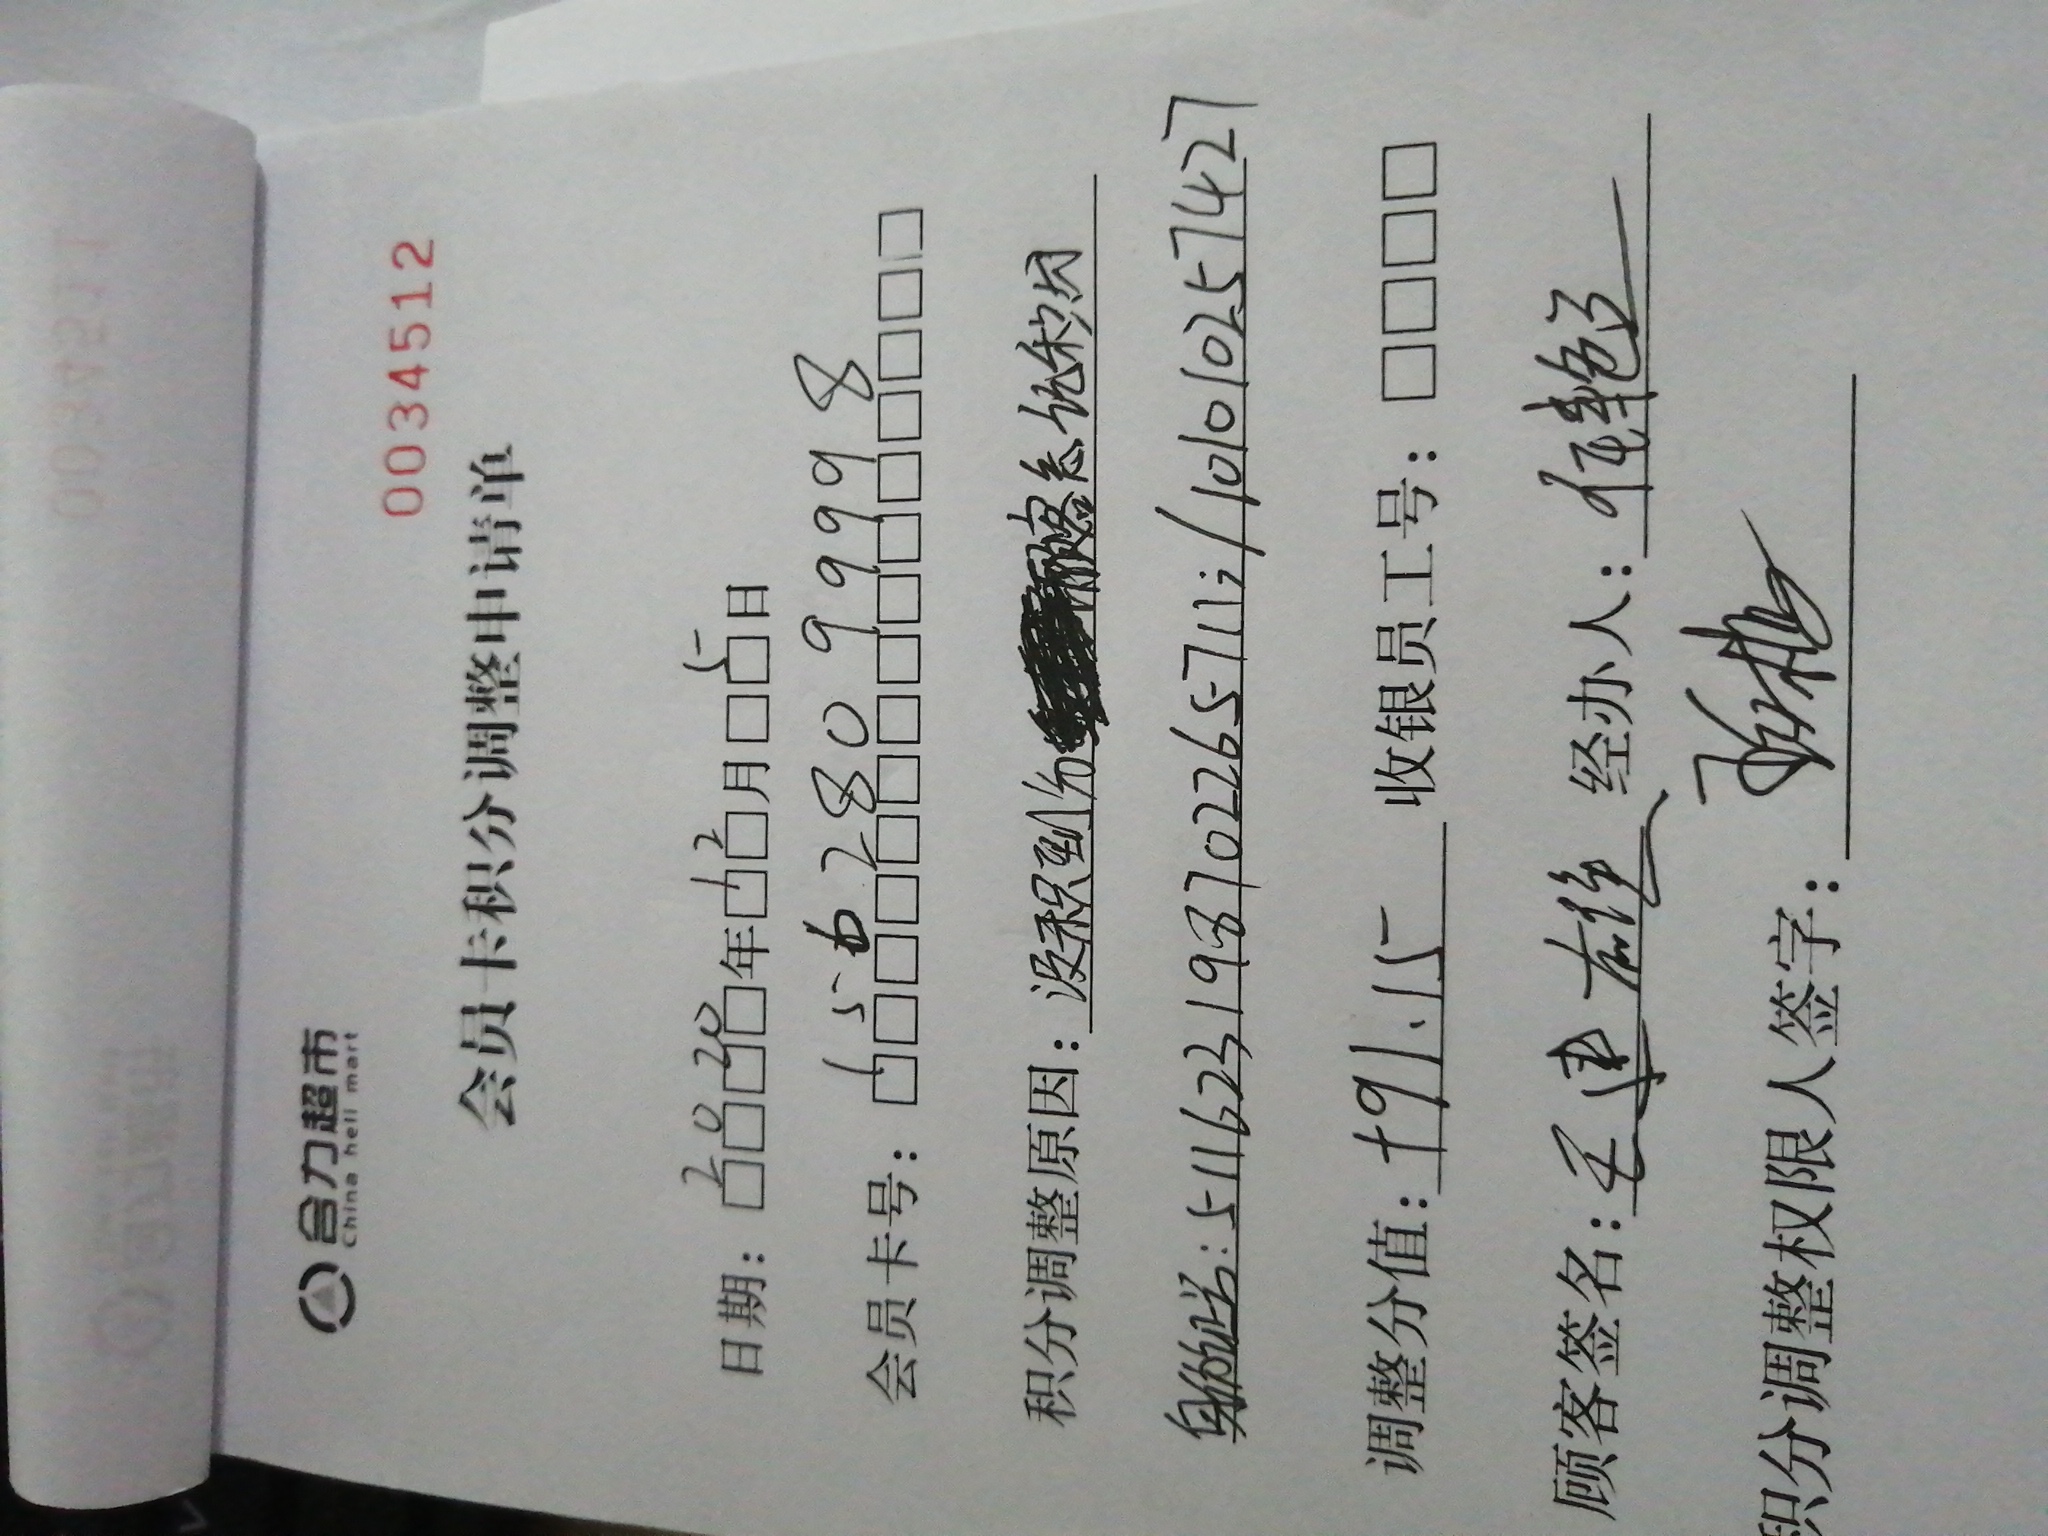 合力超市
China heli mart
0034512
会员卡积分调整申请单
日期：2020年12月5日
会员卡号：15628099998
积分调整原因：没积到分 顾客系统积分
身份证号：511623198702265711；/1010102557427
调整分值：+91.15 收银员工号：□□□□
顾客签名： 经办人：
积分调整权限人签字：